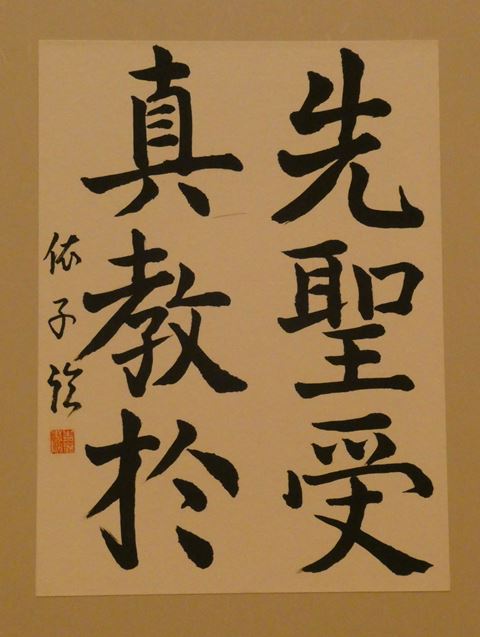 先聖受
真教於
依子臨